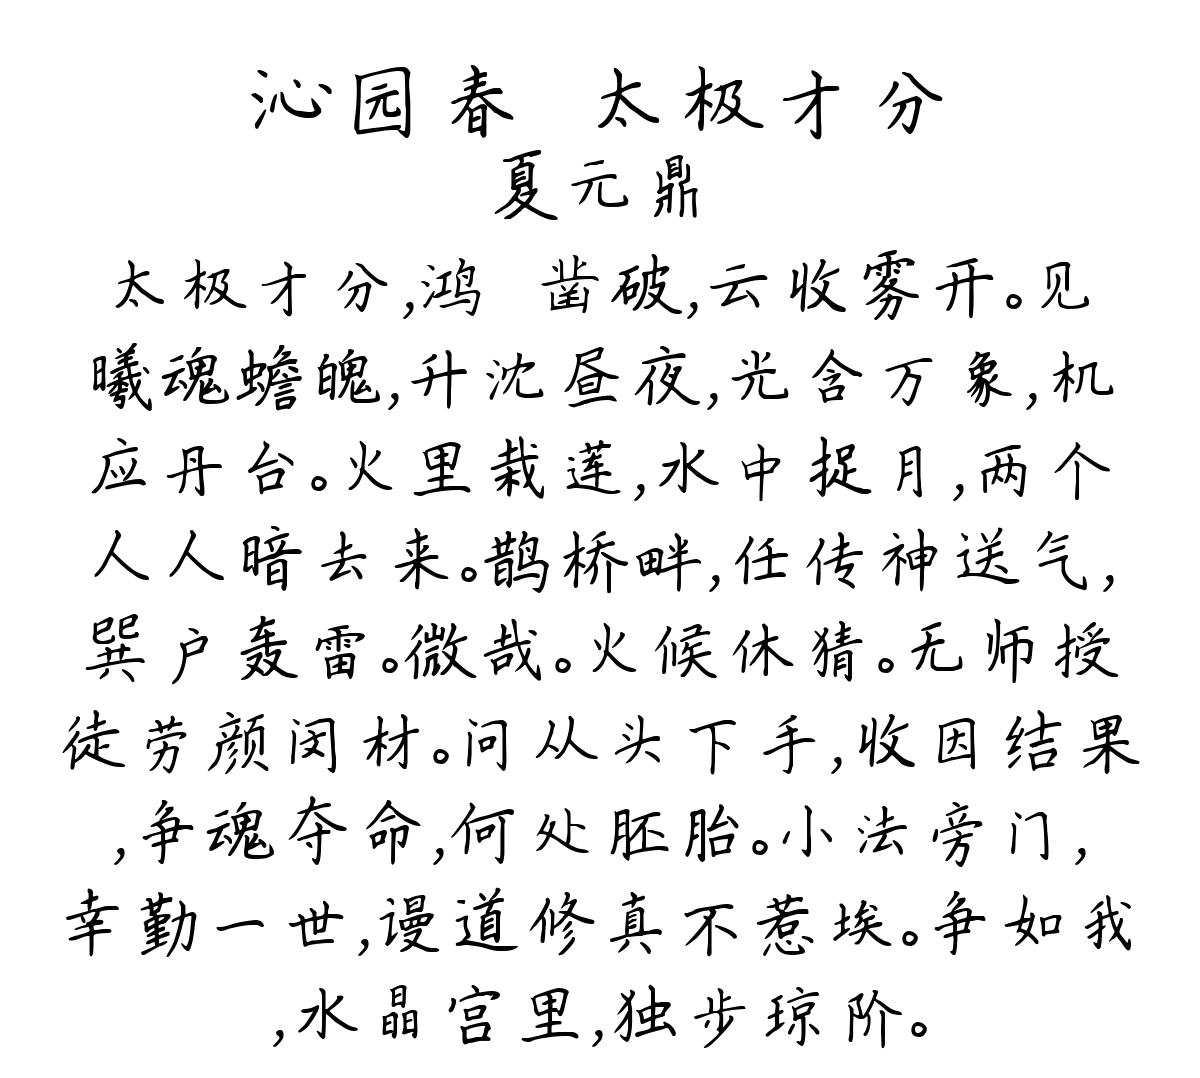 沁园春 太极才分
夏元鼎
太极才分,鸿 凿破,云收雾开。见
曦魂蟾魄,升沈昼夜,光含万象,机
应丹台。火里栽莲,水中捉月,两个
人人暗去来。鹊桥畔,任传神送气,
巽户轰雷。微哉。火候休猜。无师授
徒劳颜闵材。问从头下手,收因结果
,争魂夺命,何处胚胎。小法旁门,
幸勤一世,谩道修真不惹埃。争如我
,水晶宫里,独步琼阶。